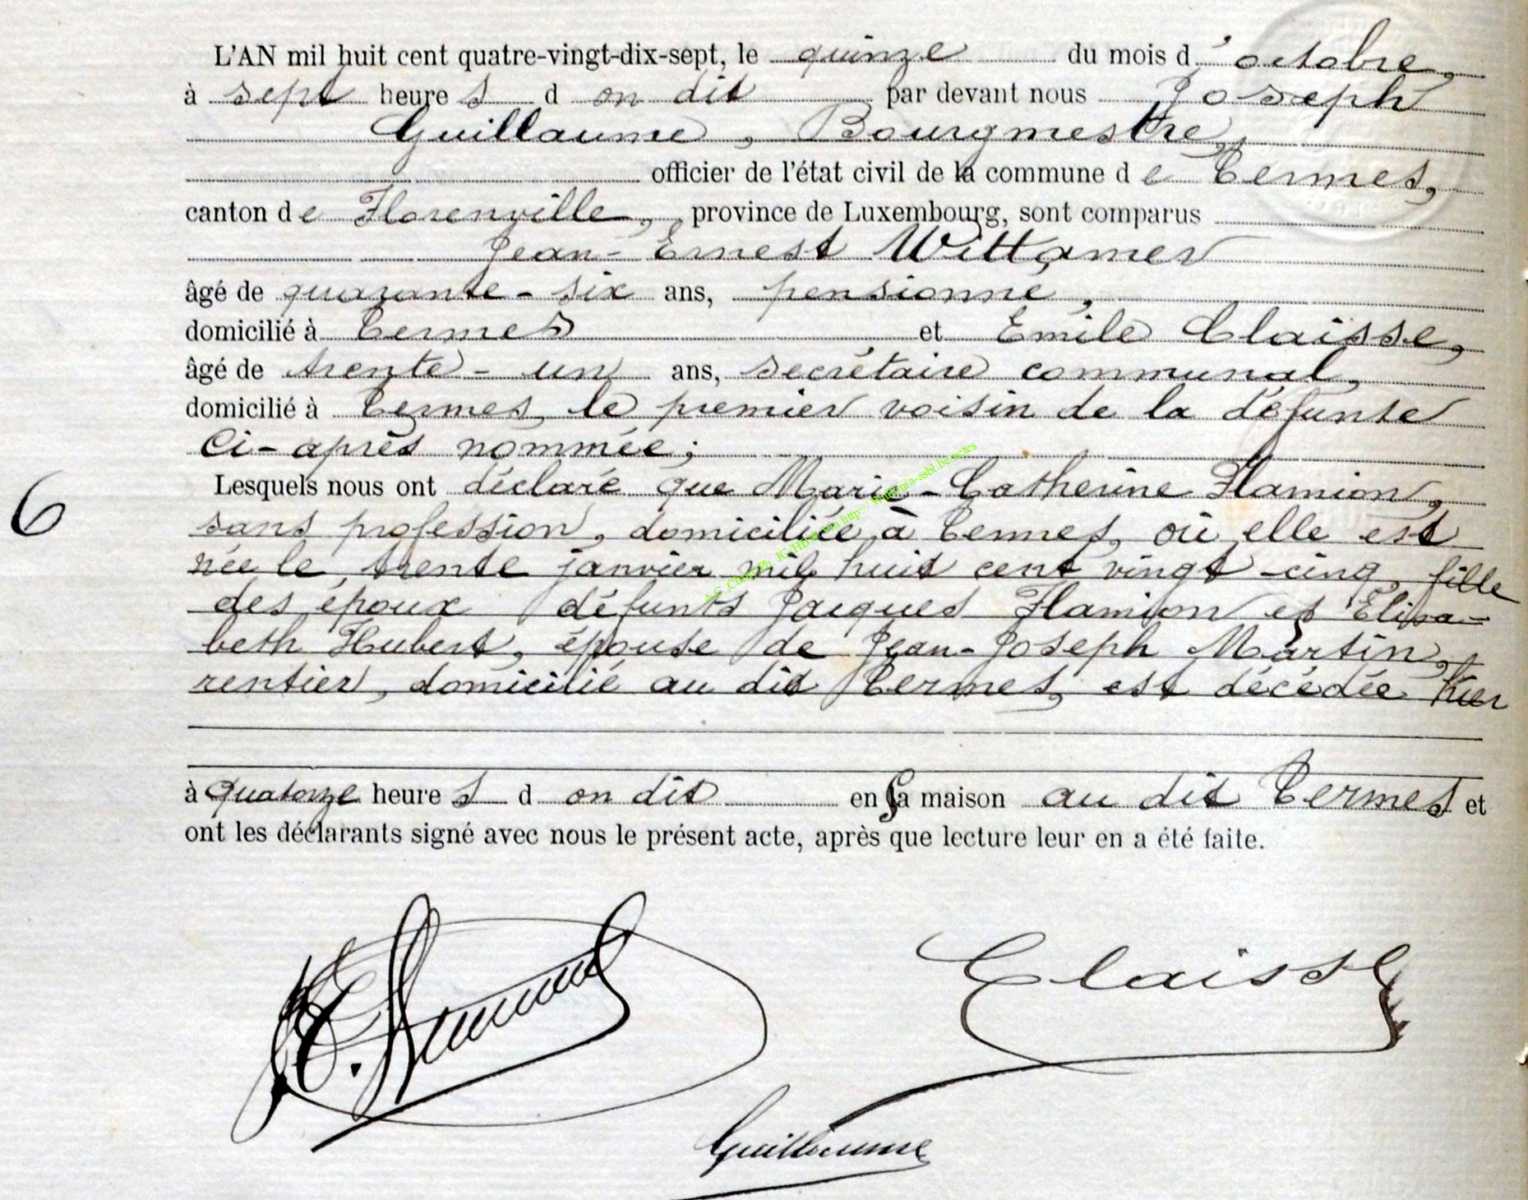 L'AN mil huit cent quatre-vingt-dix-sept, le quinze du mois d'octobre,
à sept heures d on dit par devant nous Joseph
Guillaume, Bourgmestre,
officier de l'état civil de la commune de Termes,
canton de Florenville, province de Luxembourg, sont comparus
Jean-Ernest Wittamer
âgé de quarante-six ans, pensionné,
domicilié à Termes et Emile Claisse,
âgé de trente-un ans, secrétaire communal,
domicilié à Termes, le premier voisin de la défunte
ci-après nommée;
Lesquels nous ont déclaré que Marie-Catherine Flamion,
sans profession, domiciliée à Termes, où elle est
née le trente janvier mil huit cent vingt-cinq, fille
des époux défunts Jacques Flamion et Elisa-
beth Hubert, épouse de Jean-Joseph Martin,
rentier, domicilié au dit Termes, est décédée hier
à quatorze heures d on dit en sa maison au dit Termes et
ont les déclarants signé avec nous le présent acte, après que lecture leur en a été faite.
6
Claisse
Guillaume